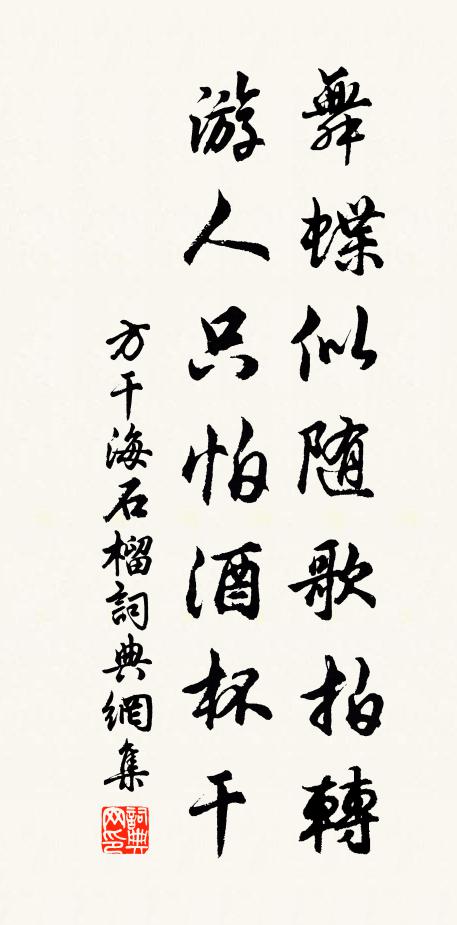 舞蝶似随歌拍轉
游人只怕酒杯干
方干海石榴詞典網集
詞典网印